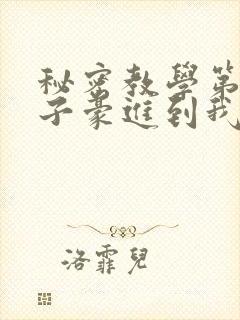 秘密教學第
子豪進到我
洛霏兒